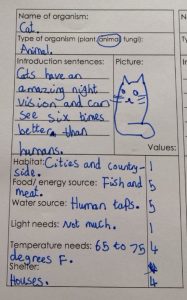 Name of organism:
Cat.
Type of organism (plant, animal, fungi):
Animal.
Introduction sentences:
Picture:
Cats have an
amazing night
vision and can
see six times
better than
humans.
Values:
Habitat: Cities and country-
side.
1
Food/ energy source: Fish and
meat.
5
Water source: Human taps.
5
Light needs: Not much.
1
Temperature needs: 65 to 75
degrees F.
4
Shelter:
Houses.
4